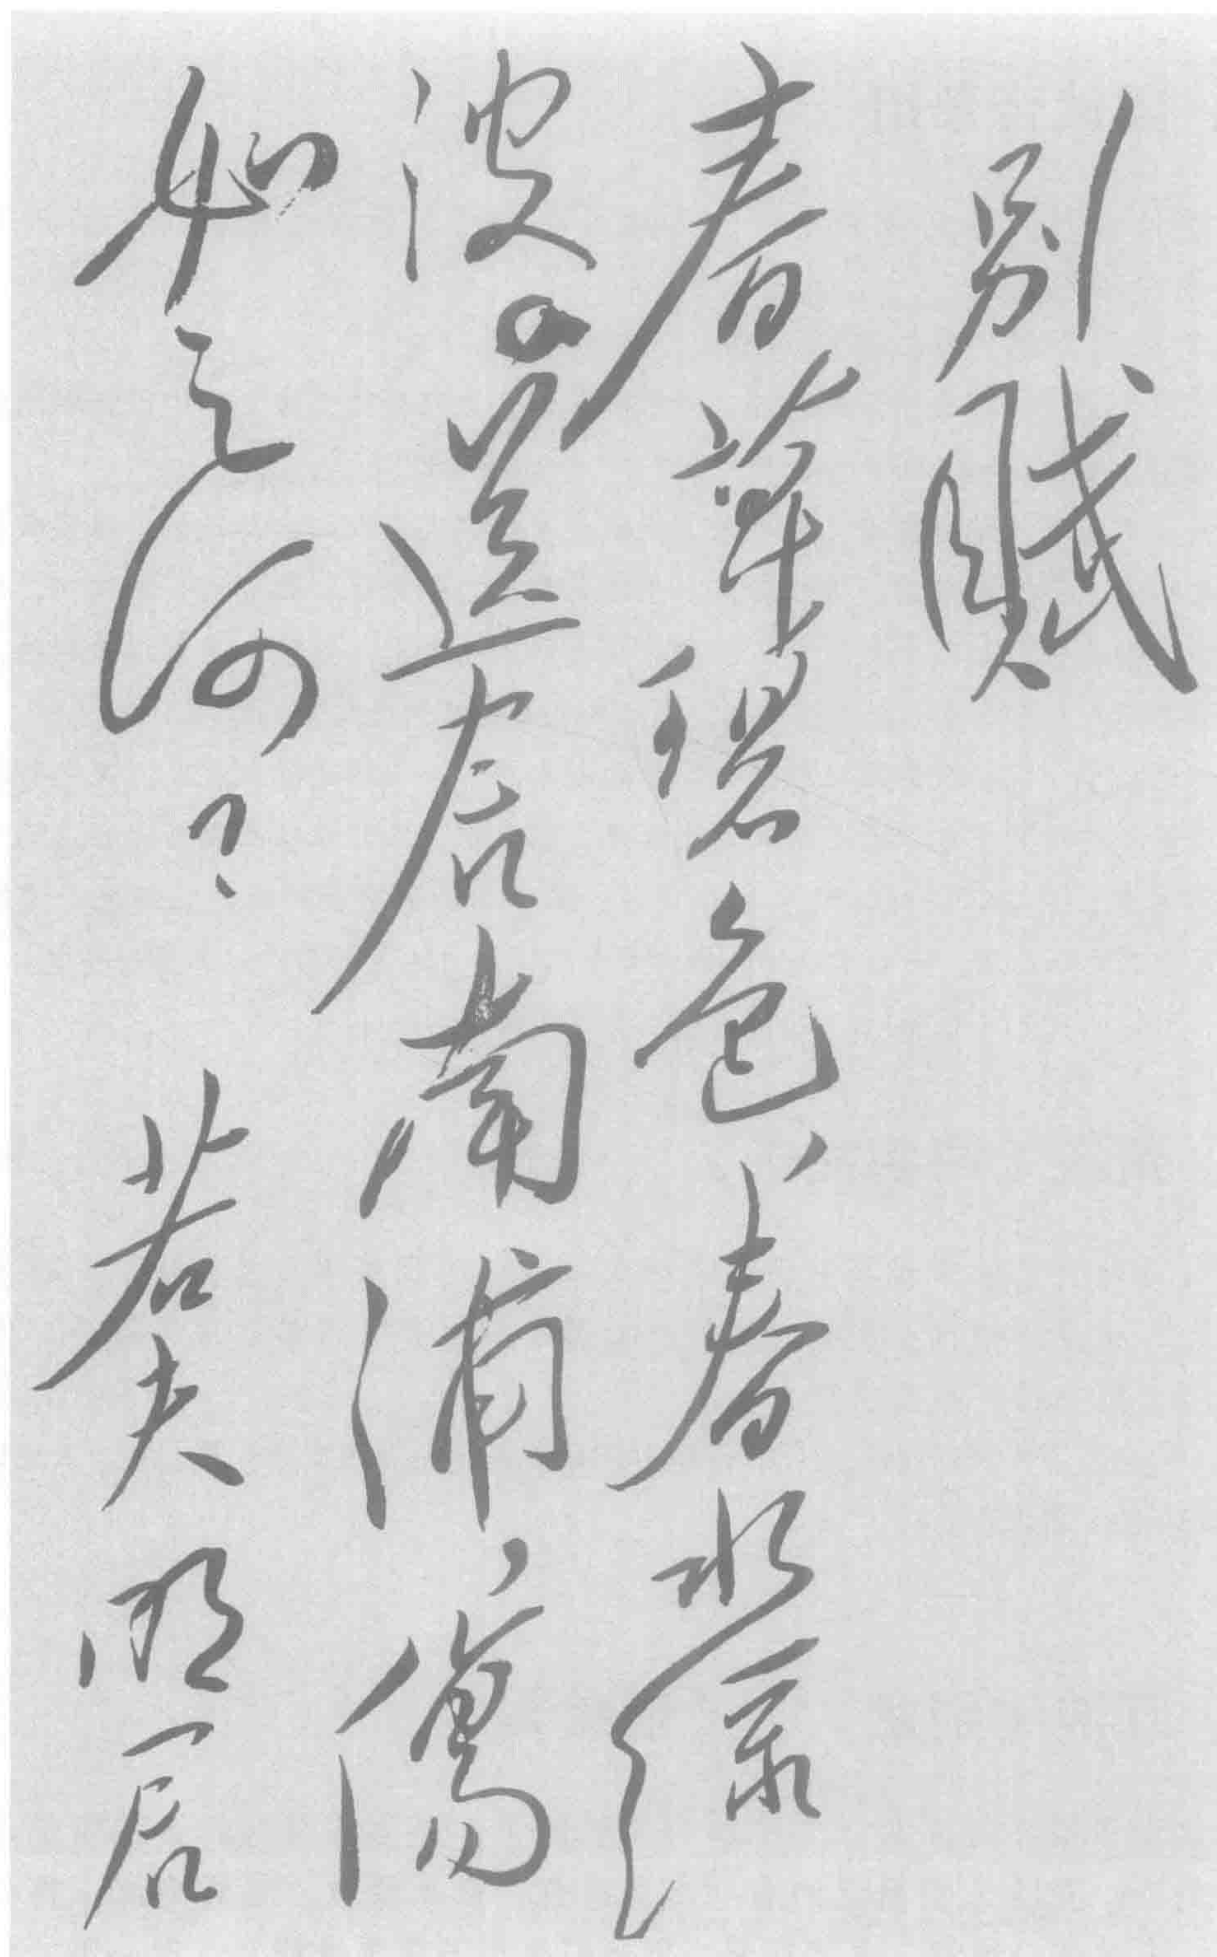 别賦
春草碧色、春水綠
波。送君南浦、傷
如之何 若夫明君